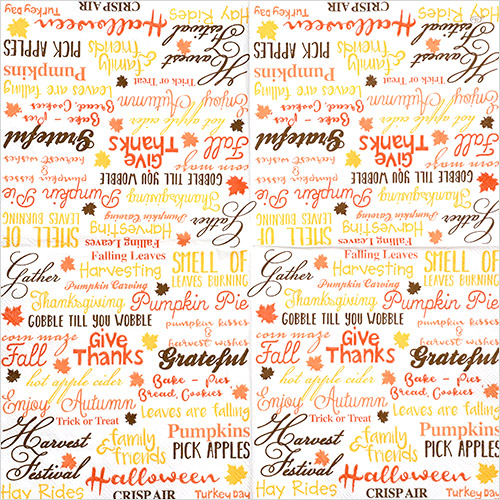 Hay Rides CRISP AIR Turkey Day
Harvest Festival family & friends Halloween
PICK APPLES
Pumpkins Trick or Treat
Leaves are falling Enjoy Autumn
Bread, Cookies
Bake - Pies hot apple cider
Grateful Give Thanks Fall
harvest wishes corn maze
&
pumpkin kisses GOBBLE TILL YOU WOBBLE
Pumpkin Pie Thanksgiving
Pumpkin Carving Gather
LEAVES BURNING Harvesting
SMELL OF Falling Leaves
Hay Rides CRISP AIR Turkey Day
Harvest Festival family & friends Halloween
PICK APPLES
Pumpkins Trick or Treat
Leaves are falling Enjoy Autumn
Bread, Cookies
Bake - Pies hot apple cider
Grateful Give Thanks Fall
harvest wishes corn maze
&
pumpkin kisses GOBBLE TILL YOU WOBBLE
Pumpkin Pie Thanksgiving
Pumpkin Carving Gather
LEAVES BURNING Harvesting
SMELL OF Falling Leaves
Falling Leaves SMELL OF
Gather Harvesting LEAVES BURNING
Pumpkin Carving
Thanksgiving Pumpkin Pie
GOBBLE TILL YOU WOBBLE pumpkin kisses
&
corn maze harvest wishes
Fall Give Thanks Grateful
hot apple cider Bake - Pies
Bread, Cookies
Enjoy Autumn Leaves are falling
Trick or Treat Pumpkins
Harvest Festival family & friends PICK APPLES
Halloween
Hay Rides CRISP AIR Turkey Day
Falling Leaves SMELL OF
Gather Harvesting LEAVES BURNING
Pumpkin Carving
Thanksgiving Pumpkin Pie
GOBBLE TILL YOU WOBBLE pumpkin kisses
&
corn maze harvest wishes
Fall Give Thanks Grateful
hot apple cider Bake - Pies
Bread, Cookies
Enjoy Autumn Leaves are falling
Trick or Treat Pumpkins
Harvest Festival family & friends PICK APPLES
Halloween
Hay Rides CRISP AIR Turkey Day